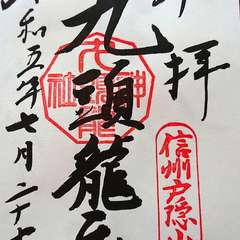 奉拝
信州戸隠山
九頭龍
令和五年七月二十七